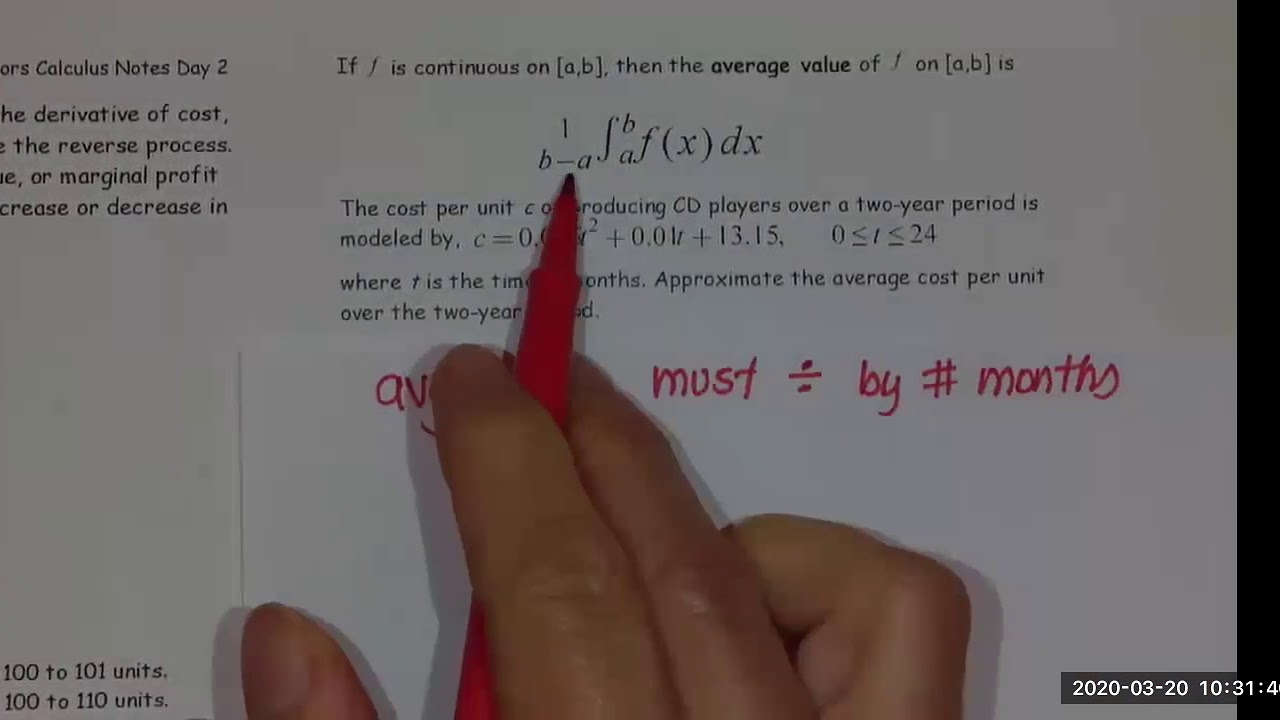 ors Calculus Notes Day 2
he derivative of cost,
e the reverse process.
ue, or marginal profit
crease or decrease in
100 to 101 units.
100 to 110 units.
If f is continuous on [a,b], then the average value of f on [a,b] is
1/(b−a) ∫_a^b f(x) dx
The cost per unit c o roducing CD players over a two-year period is
modeled by, c = 0.0 t² + 0.01t + 13.15, 0 ≤ t ≤ 24
where t is the tim onths. Approximate the average cost per unit
over the two-year d.
av must ÷ by # months
2020-03-20 10:31:4